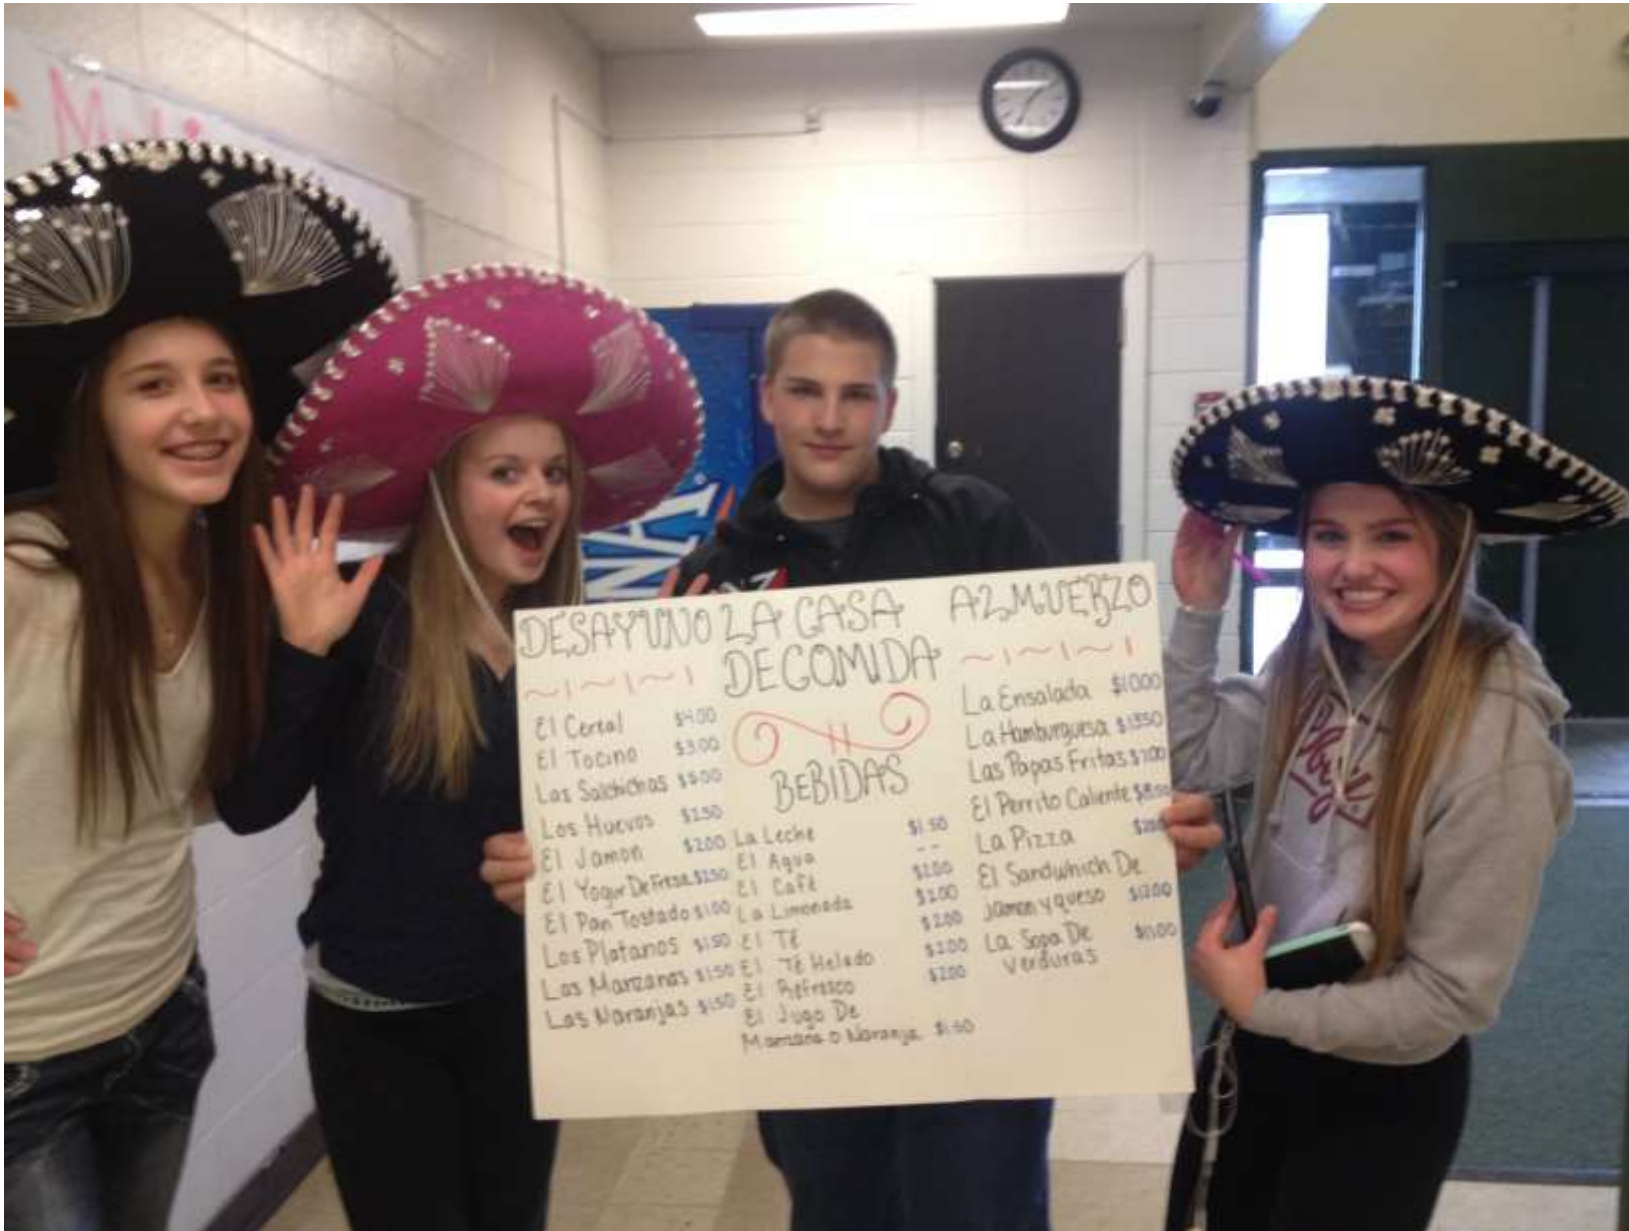 DESAYUNO
El Cereal $4.00
El Tocino $3.00
Las Salchichas $5.00
Los Huevos $2.50
El Jamon $2.00
El Yogur De Fresa $2.50
El Pan Tostado $1.00
Los Platanos $1.50
Las Manzanas $1.50
Las Naranjas $1.50
LA CASA
DE COMIDA
BEBIDAS
La Leche $1.50
El Agua --
El Café $2.00
La Limonada $2.00
El Té $2.00
El Té Helado $2.00
El Refresco $2.00
El Jugo De
Manzana o Naranja $1.50
ALMUERZO
La Ensalada $10.00
La Hamburguesa $13.50
Las Papas Fritas $7.00
El Perrito Caliente $8.50
La Pizza
El Sandwhich De
jamon y queso $12.00
La Sopa De $11.00
verduras
NA